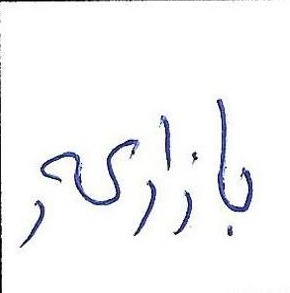 بازاری،